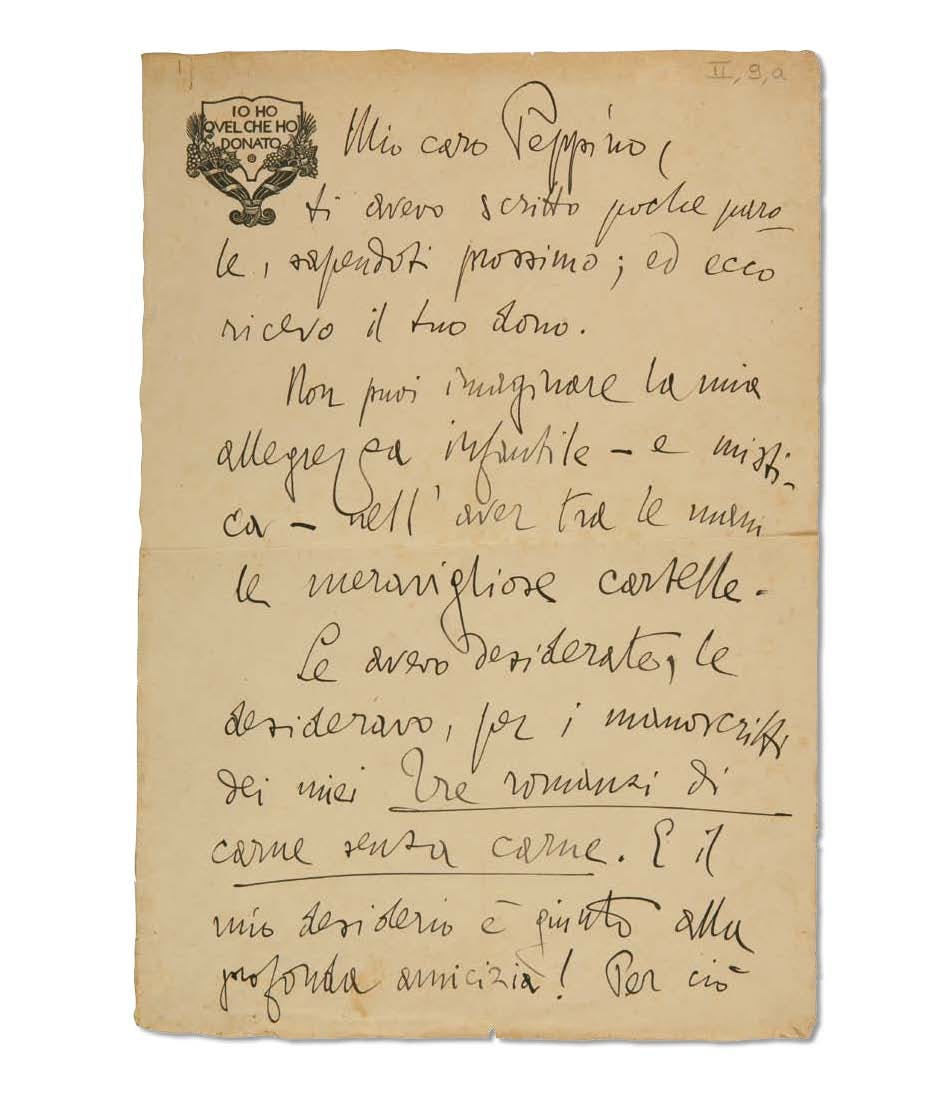 II, 9, a
IO HO
QVEL CHE HO
DONATO
Mio caro Peppino,
ti avevo scritto poche paro
le, sapendoti prossimo; ed ecco
ricevo il tuo dono.
Non puoi imaginare la mia
allegrezza infantile – e misti-
ca – nell'aver tra le mani
le meravigliose cartelle.
Le avevo desiderate, le
desideravo, per i manoscritti
dei miei Tre romanzi di
carne senza carne. E il
mio desiderio è giunto alla
profonda amicizia! Per ciò